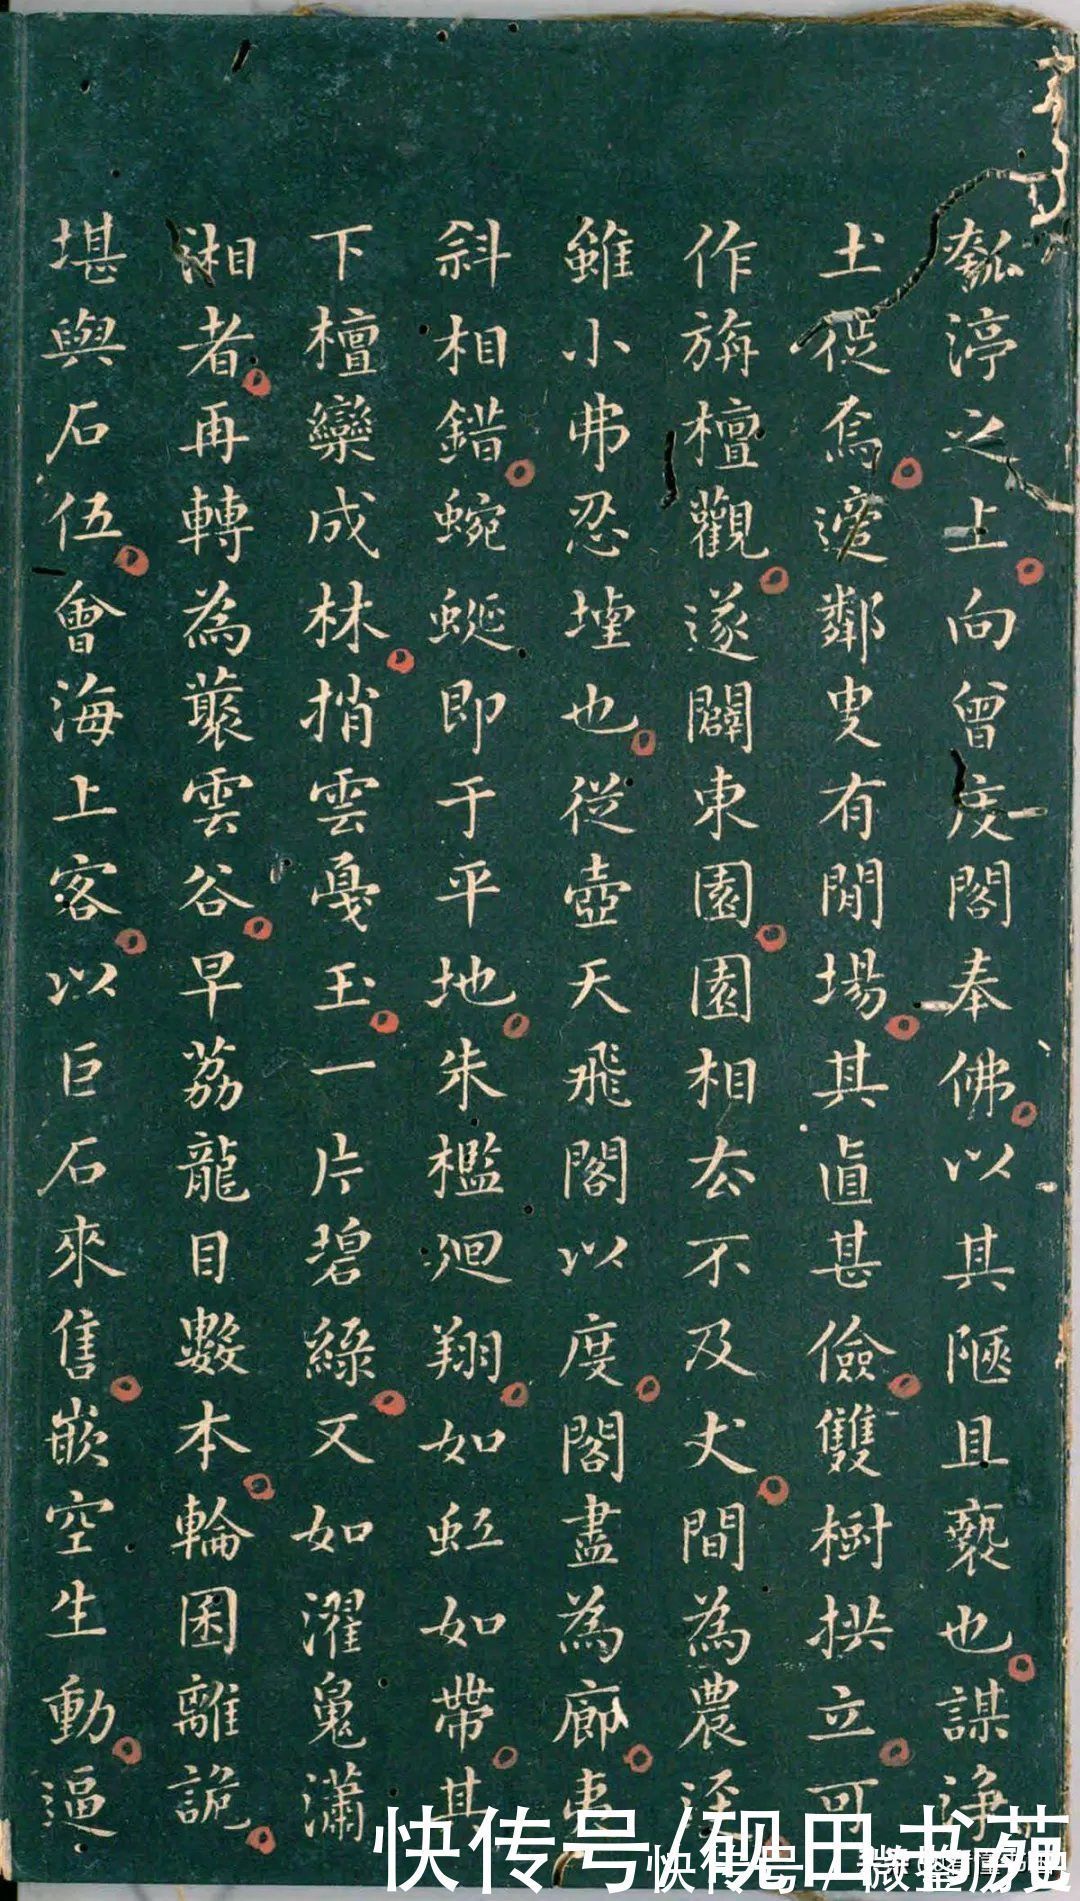 瓠渟之上向曾度閣奉佛以其陋且褻也謀淨
土從焉適鄰叟有閒場其直甚儉雙樹拱立可
作旃檀觀遂闢東園園相去不及丈間為農
雖小弗忍堙也從壺天飛閣以度閣盡為廊東
斜相錯蜿蜒即于平地朱檻迴翔如虹如帶其
下檀欒成林捎雲戛玉一片碧綠又如濯嵬瀟
湘者再轉為叢雲谷早荔龍目數本輪囷離詭
堪與石伍會海上客以巨石來售嵌空生動逼
快传号/砚田书苑
快传号/微鉴历史